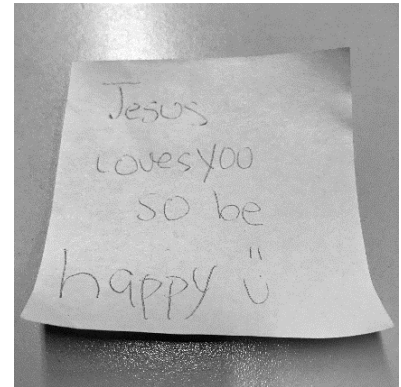 Jesus
loves you
so be
happy :)